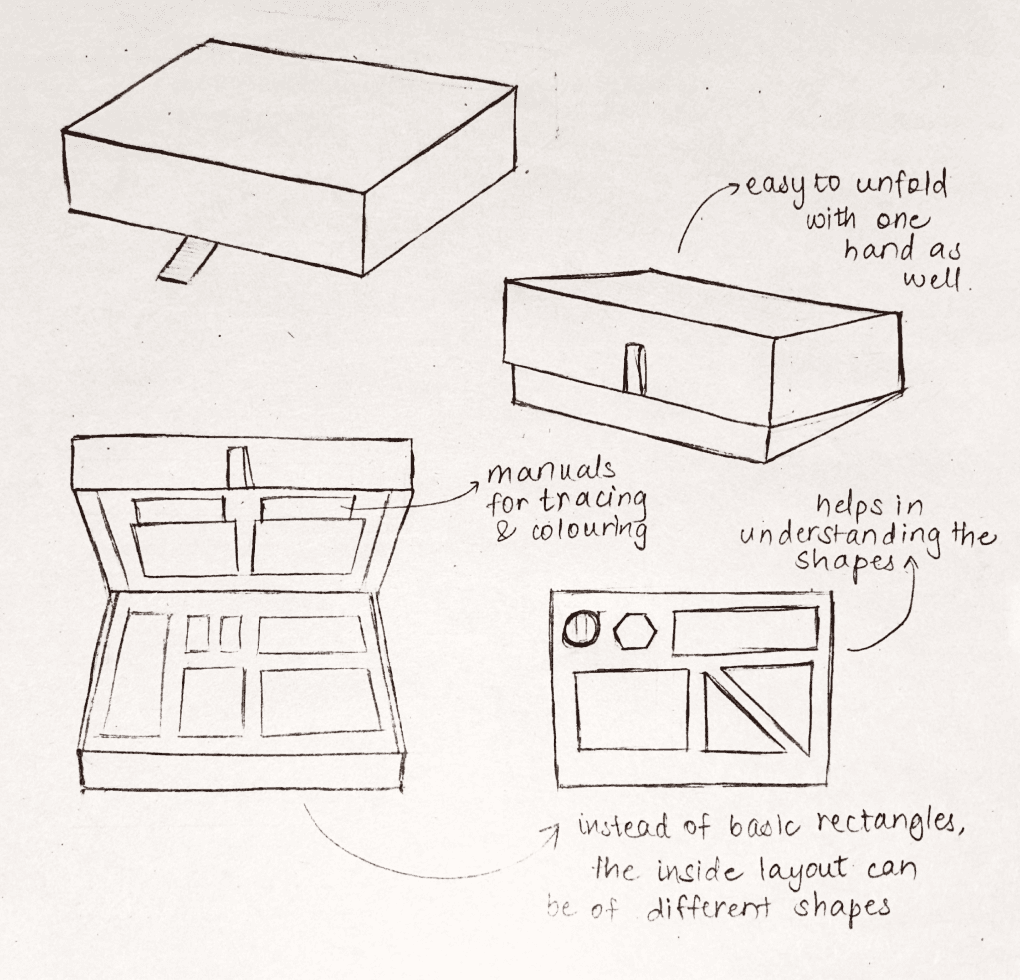 easy to unfold
with one
hand as
well.
manuals
for tracing
& colouring
helps in
understanding the
shapes
instead of basic rectangles,
the inside layout can
be of different shapes